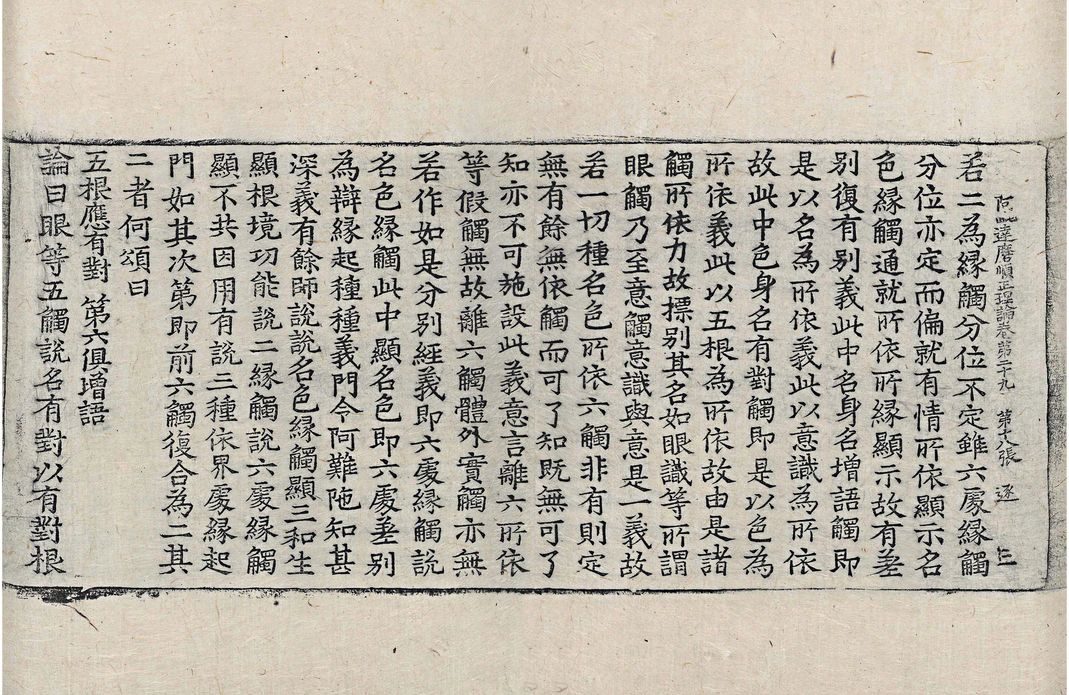 阿毗達磨順正理論卷第二十九 第十八張 逐
若二為緣觸分位不定雖六處緣觸
分位亦定而偏就有情所依顯示名
色緣觸通就所依所緣顯示故有差
別復有別義此中名身名增語觸即
是以名為所依義此以意識為所依
故此中色身名有對觸即是以色為
所依義此以五根為所依故由是諸
觸所依力故標別其名如眼識等所謂
眼觸乃至意觸意識與意是一義故
若一切種名色所依六觸非有則定
無有餘無依觸而可了知既無可了
知亦不可施設此義意言離六所依
等假觸無故離六觸體外實觸亦無
若作如是分別經義即六處緣觸說
名色緣觸此中顯名色即六處差別
為辯緣起種種義門令阿難陁知甚
深義有餘師說說名色緣觸顯三和生
顯根境功能說二緣觸說六處緣觸
顯不共因用有說三種依界處緣起
門如其次第即前六觸復合為二其
二者何頌曰
五根應有對 第六俱增語
論曰眼等五觸說名有對以有對根